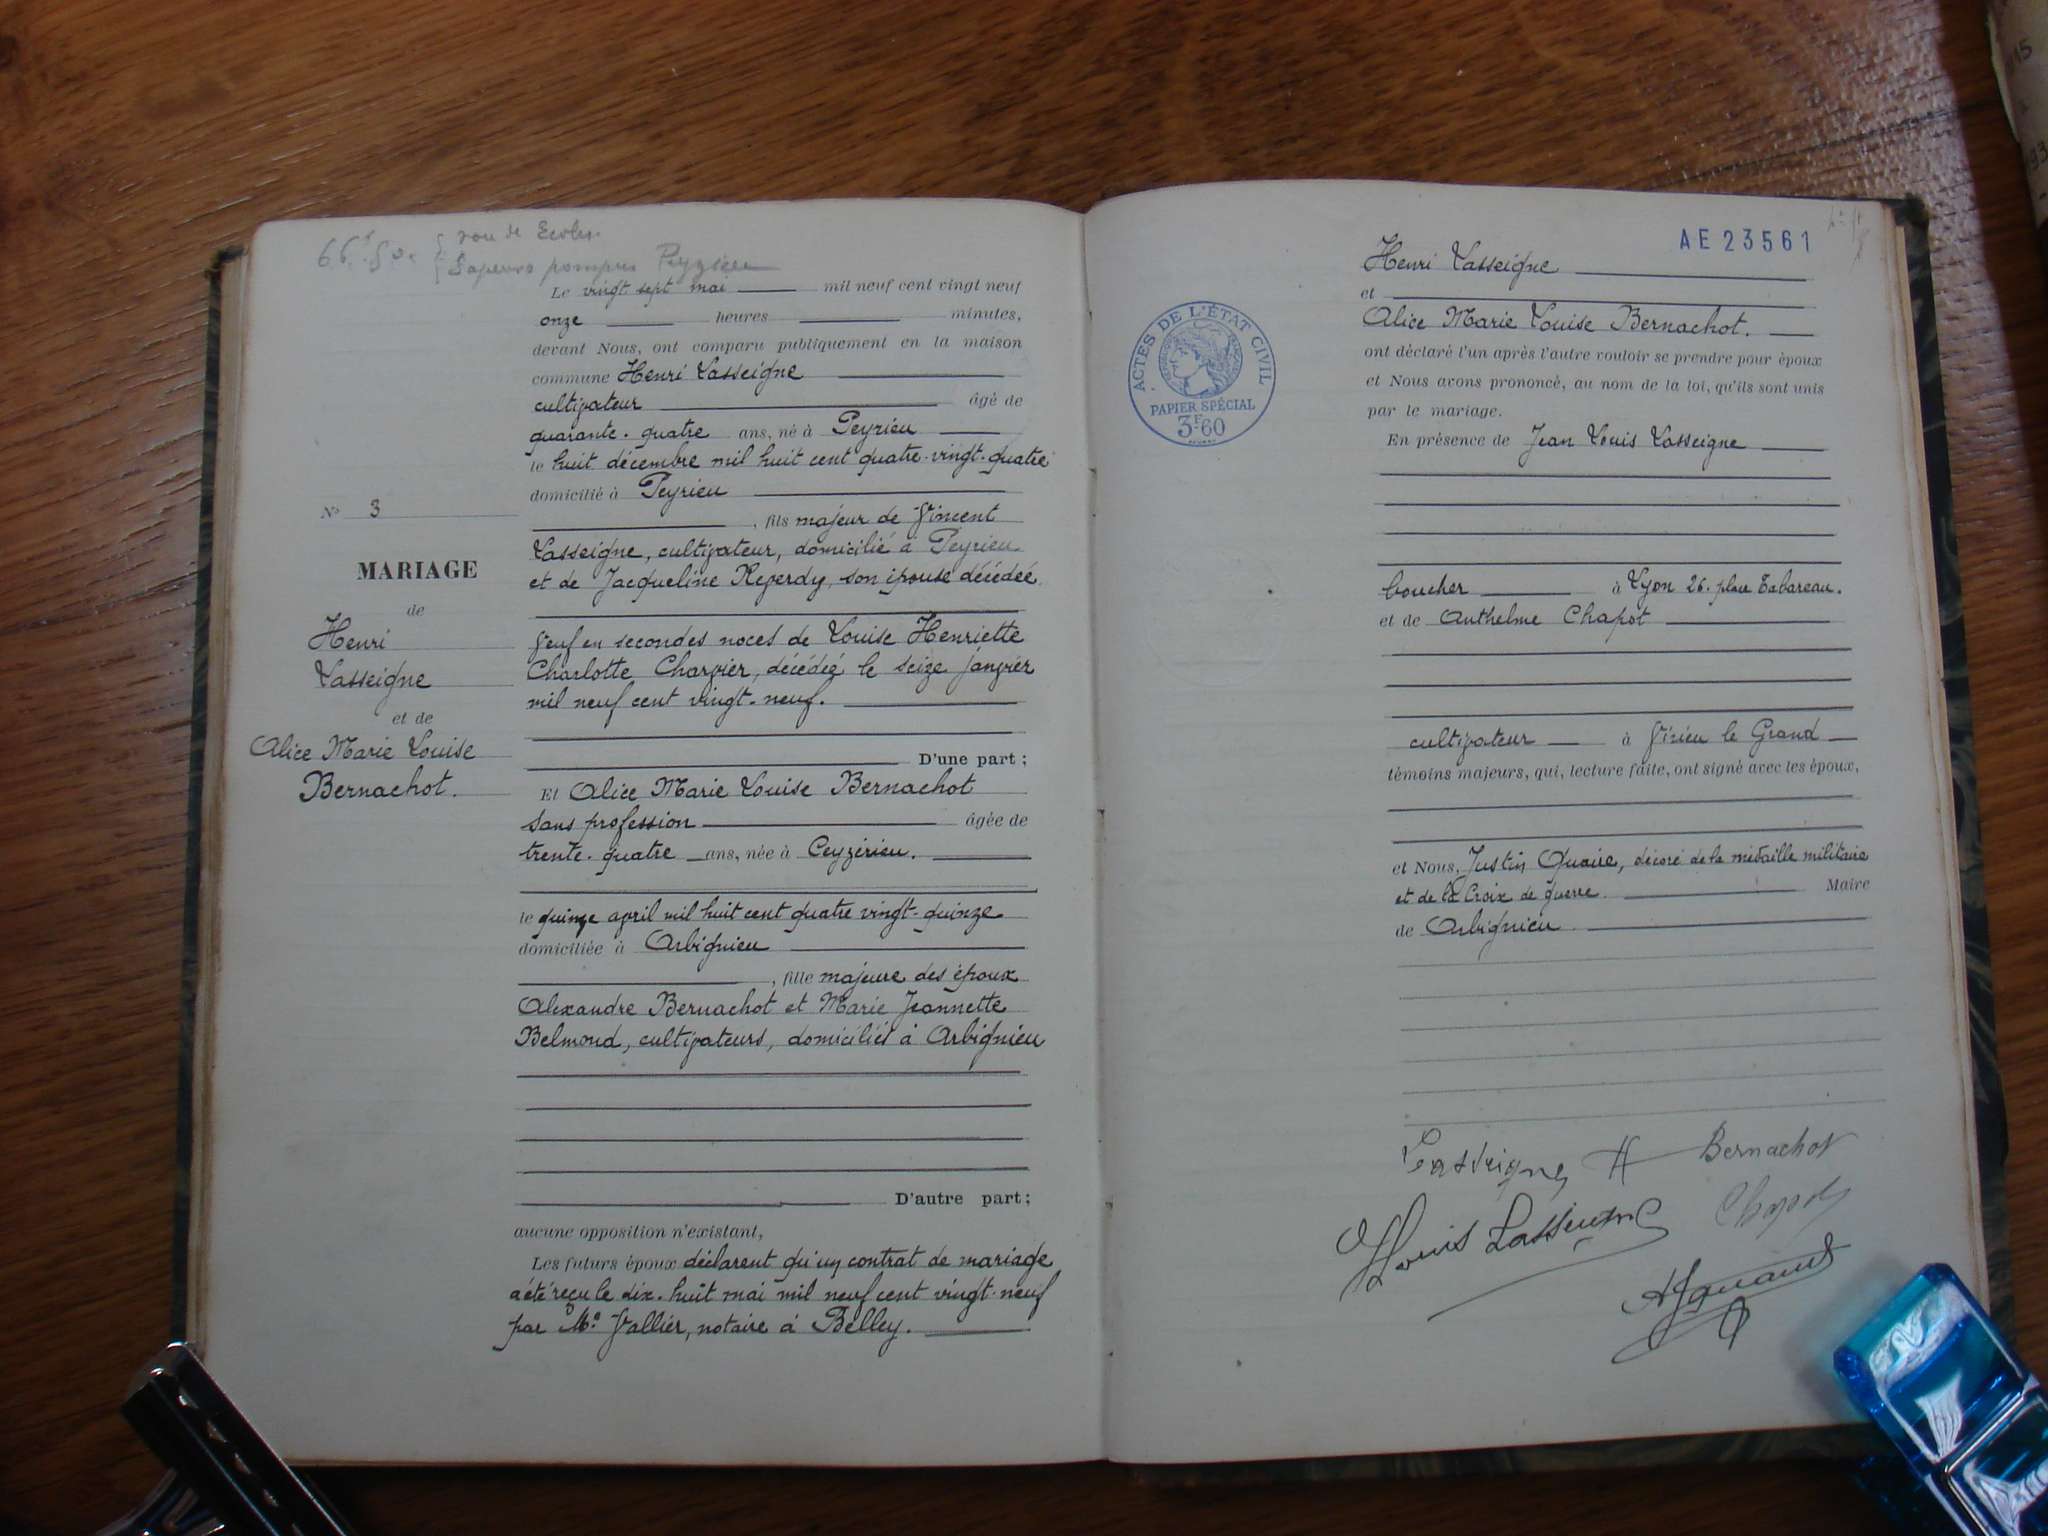 66f 50
sou de Ecoles
Sapeurs pompiers Peyrieu
Le vingt sept mai mil neuf cent vingt neuf
onze heures minutes,
devant Nous, ont comparu publiquement en la maison
commune Henri Lasseigne
cultivateur âgé de
quarante-quatre ans, né à Peyrieu
le huit décembre mil huit cent quatre-vingt-quatre
domicilié à Peyrieu
, fils majeur de Vincent
Lasseigne, cultivateur, domicilié à Peyrieu
et de Jacqueline Reverdy, son épouse décédée.
Veuf en secondes noces de Louise Henriette
Charlotte Charvier, décédée le seize janvier
mil neuf cent vingt-neuf.
D'une part ;
Et Alice Marie Louise Bernachot
sans profession âgée de
trente-quatre ans, née à Ceyzérieu.
le quinze avril mil huit cent quatre vingt-quinze
domiciliée à Arbignieu
, fille majeure des époux
Alexandre Bernachot et Marie Jeannette
Belmond, cultivateurs, domiciliés à Arbignieu
D'autre part ;
aucune opposition n'existant,
Les futurs époux déclarent qu'un contrat de mariage
a été reçu le dix-huit mai mil neuf cent vingt-neuf
par Me Vallier, notaire à Belley.
No 3
MARIAGE
de
Henri
Lasseigne
et de
Alice Marie Louise
Bernachot.
AE 23561
ACTES DE L'ÉTAT CIVIL
PAPIER SPÉCIAL
3F60
Henri Lasseigne
et
Alice Marie Louise Bernachot.
ont déclaré l'un après l'autre vouloir se prendre pour époux
et Nous avons prononcé, au nom de la loi, qu'ils sont unis
par le mariage.
En présence de Jean Louis Lasseigne
boucher à Lyon 26. place Tabareau.
et de Anthelme Chapot
cultivateur à Virieu le Grand
témoins majeurs, qui, lecture faite, ont signé avec les époux,
et Nous, Justin Quaire, décoré de la médaille militaire
et de la Croix de guerre Maire
de Arbignieu
Lasseigne H Bernachot
Louis Lasseigne Chapot